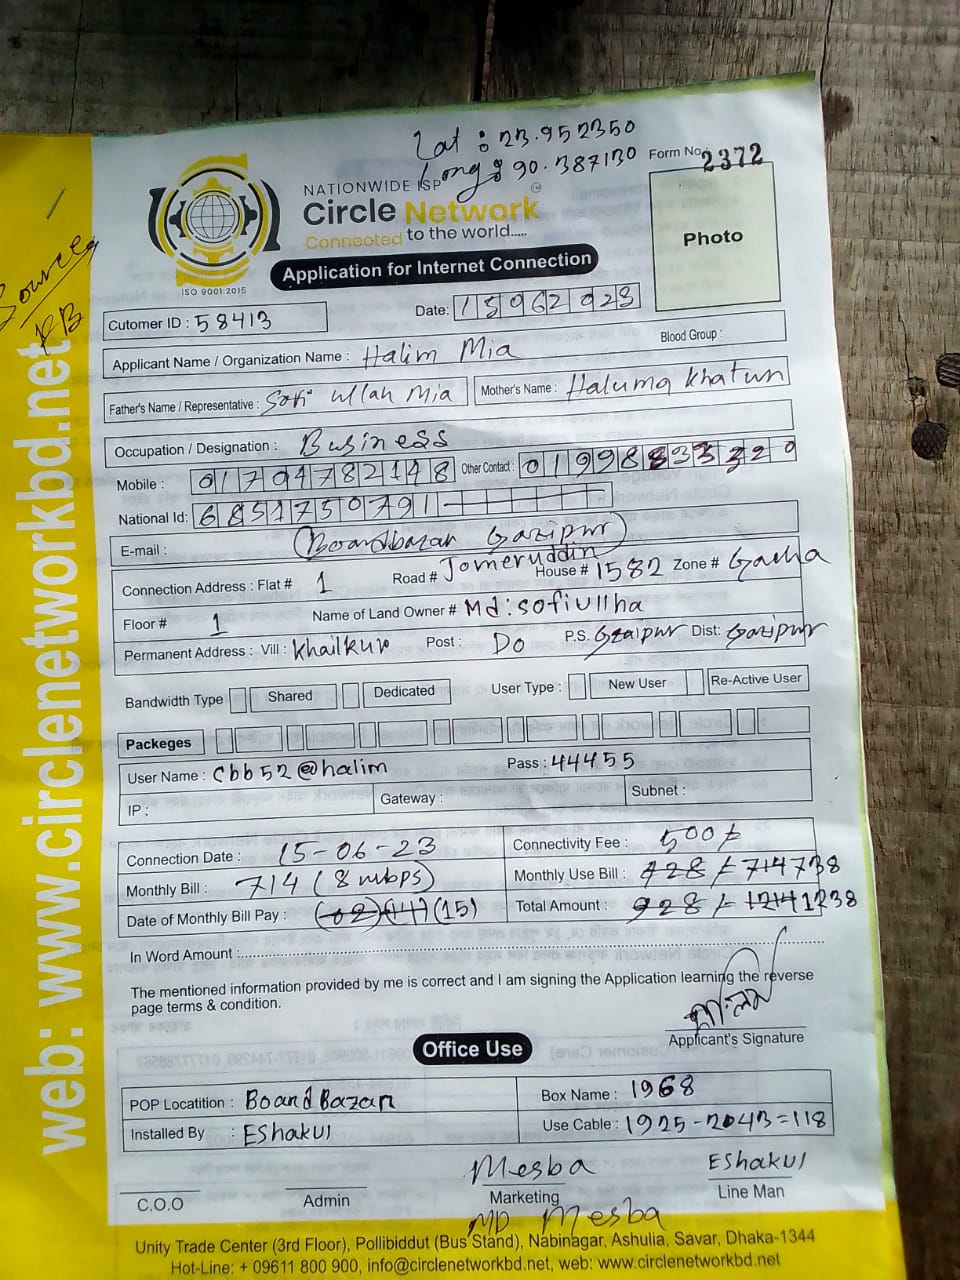 Lat : 23.952350
Long : 90.387130
Form No. 2372
NATIONWIDE ISP
Circle Network
Connected to the world.....
ISO 9001:2015
Application for Internet Connection
Photo
Source
RB
web: www.circlenetworkbd.net
Cutomer ID : 58413
Date: 15062023
Applicant Name / Organization Name : Halim Mia
Blood Group :
Father's Name / Representative : Sofi ullah Mia
Mother's Name : Haluma Khatun
Occupation / Designation : Business
Mobile : 01704782148
Other Contact : 01998833320
National Id: 6851750791
E-mail : (Boardbazar Gazipur)
Connection Address : Flat # 1 Road # Jomeruddin House # 1582 Zone # Gacha
Floor # 1 Name of Land Owner # Md: sofiullha
Permanent Address : Vill : Khailkur Post : Do P.S. Gzaipur Dist: Gazipur
Bandwidth Type Shared Dedicated User Type : New User Re-Active User
Packeges
User Name : Cbb52@halim Pass : 44455
IP : Gateway : Subnet :
Connection Date : 15-06-23
Connectivity Fee : 500/-
Monthly Bill : 714 (8 mbps)
Monthly Use Bill : 428/- 714 738
Date of Monthly Bill Pay : (02) (14) (15)
Total Amount : 928/- 1214 1238
In Word Amount :
The mentioned information provided by me is correct and I am signing the Application learning the reverse
page terms & condition.
Applicant's Signature
Office Use
POP Locatition : Board Bazar
Box Name : 1968
Installed By : EShakul
Use Cable : 1925-2043=118
Mesba
EShakul
C.O.O
Admin
Marketing
Line Man
MD Mesba
Unity Trade Center (3rd Floor), Pollibiddut (Bus Stand), Nabinagar, Ashulia, Savar, Dhaka-1344
Hot-Line: + 09611 800 900, info@circlenetworkbd.net, web: www.circlenetworkbd.net